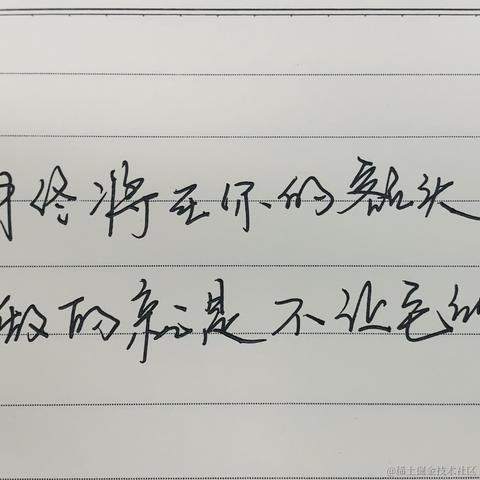 月终将在你的额头
做的就是不让它
@稀土掘金技术社区